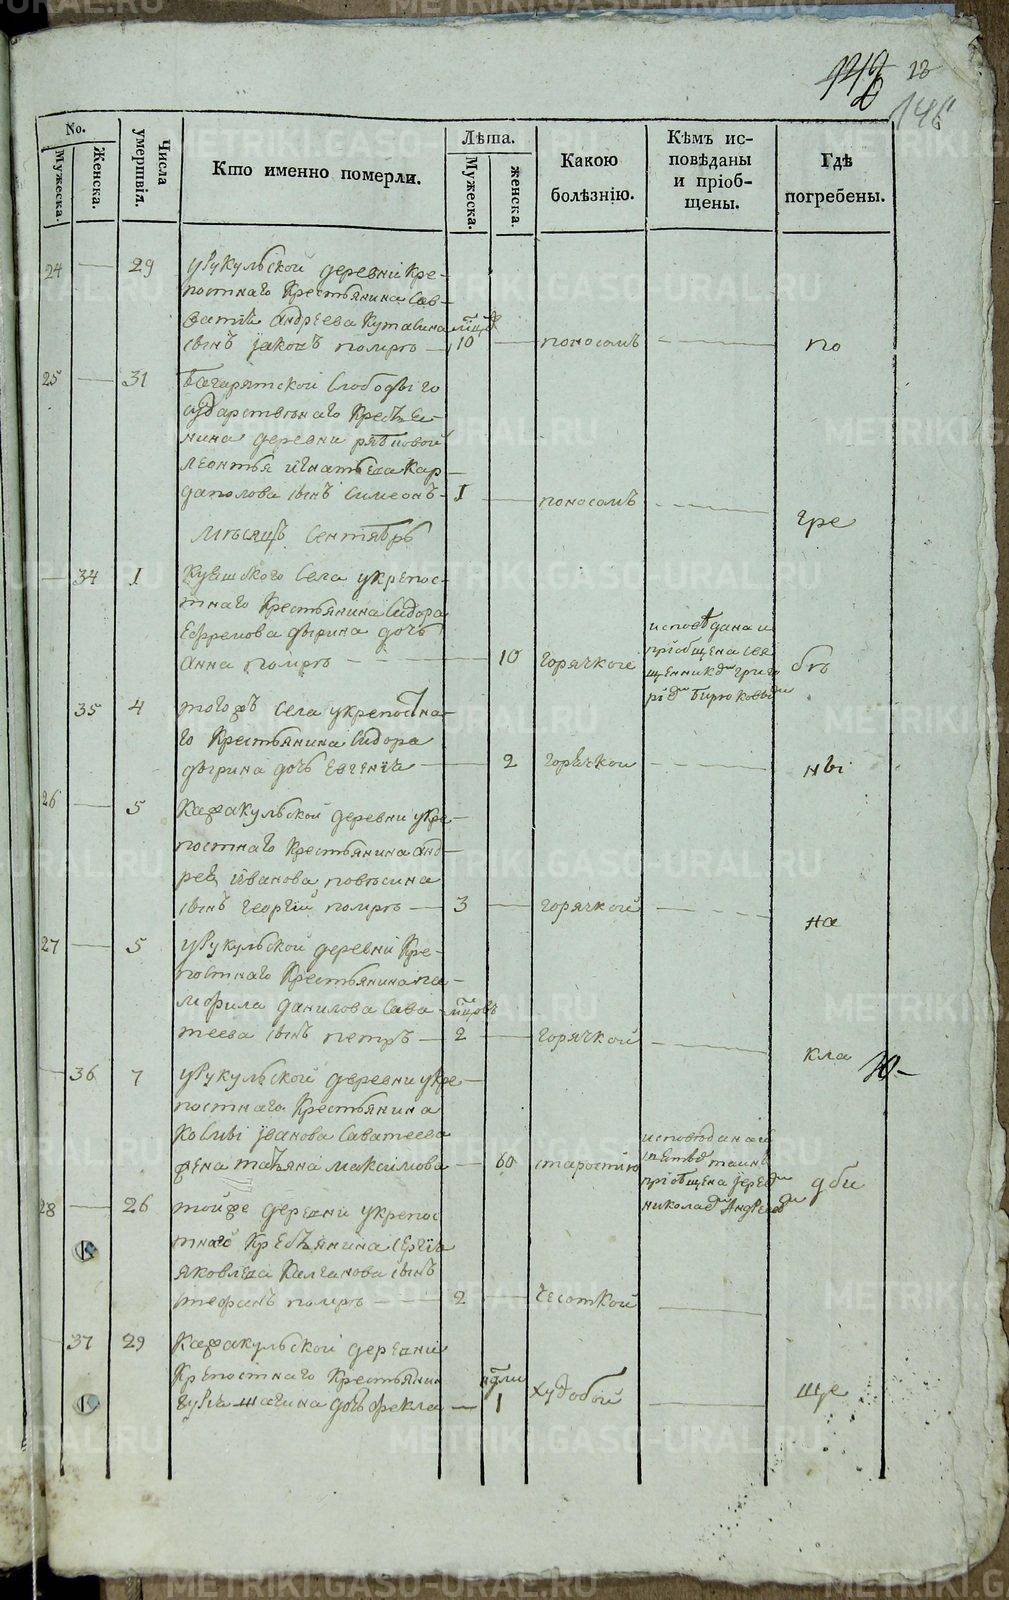 148
No.
Мужеска.
Женска.
Числа умертвiя.
Кто именно померли.
Лѣта.
Мужеска.
женска.
Какою болѣзнiю.
Кѣмъ исповѣданы и прiобщены.
Гдѣ погребены.
24 29 деревни кре-
постнаго крестьянина Сав-
ватiя Андреева
сынъ Iаковъ помре 10 поносомъ по
25 31 Багарятской слободы го
сударственнаго крестья-
нина деревни рябковой
леонтья игнатьева кар-
даполова сынъ Симеонъ 1 поносомъ гре
Мѣсяцъ Сентябрь
34 1 села укрепос-
тнаго крестьянина Сидора
Ефремова дырина дочь
анна помре 10 горячкою бѣ
исповѣдана и
прiобщена свя
щенникомъ григо
рiемъ Бирюковымъ
35 4 тогожъ села укрепостна-
го крестьянина Сидора
дырина дочь Евгенiя 2 горячкой ны
26 5 Кажакульской деревни укре-
постнаго крестьянина анд-
рея Иванова
сынъ георгiй помре 3 горячкой на
27 5 деревни кре-
постнаго крестьянина па-
мфила данилова Сава-
теева сынъ петръ 2 горячкой кла
36 7 деревни укре-
постнаго крестьянина
iванова Саватеева
жена татьяна максимова 60 старостiю дби
исповѣдана
прiобщена iереемъ
николаемъ
28 26 тойже деревни укрепос
тнаго крестьянина сергiя
яковлева Калганова сынъ
стефанъ помре 2 чесоткой
37 29 Кажакульской деревни
крепостнаго крестьянина
дочь фекла 1 худобой ще
METRIKI.GASO-URAL.RU